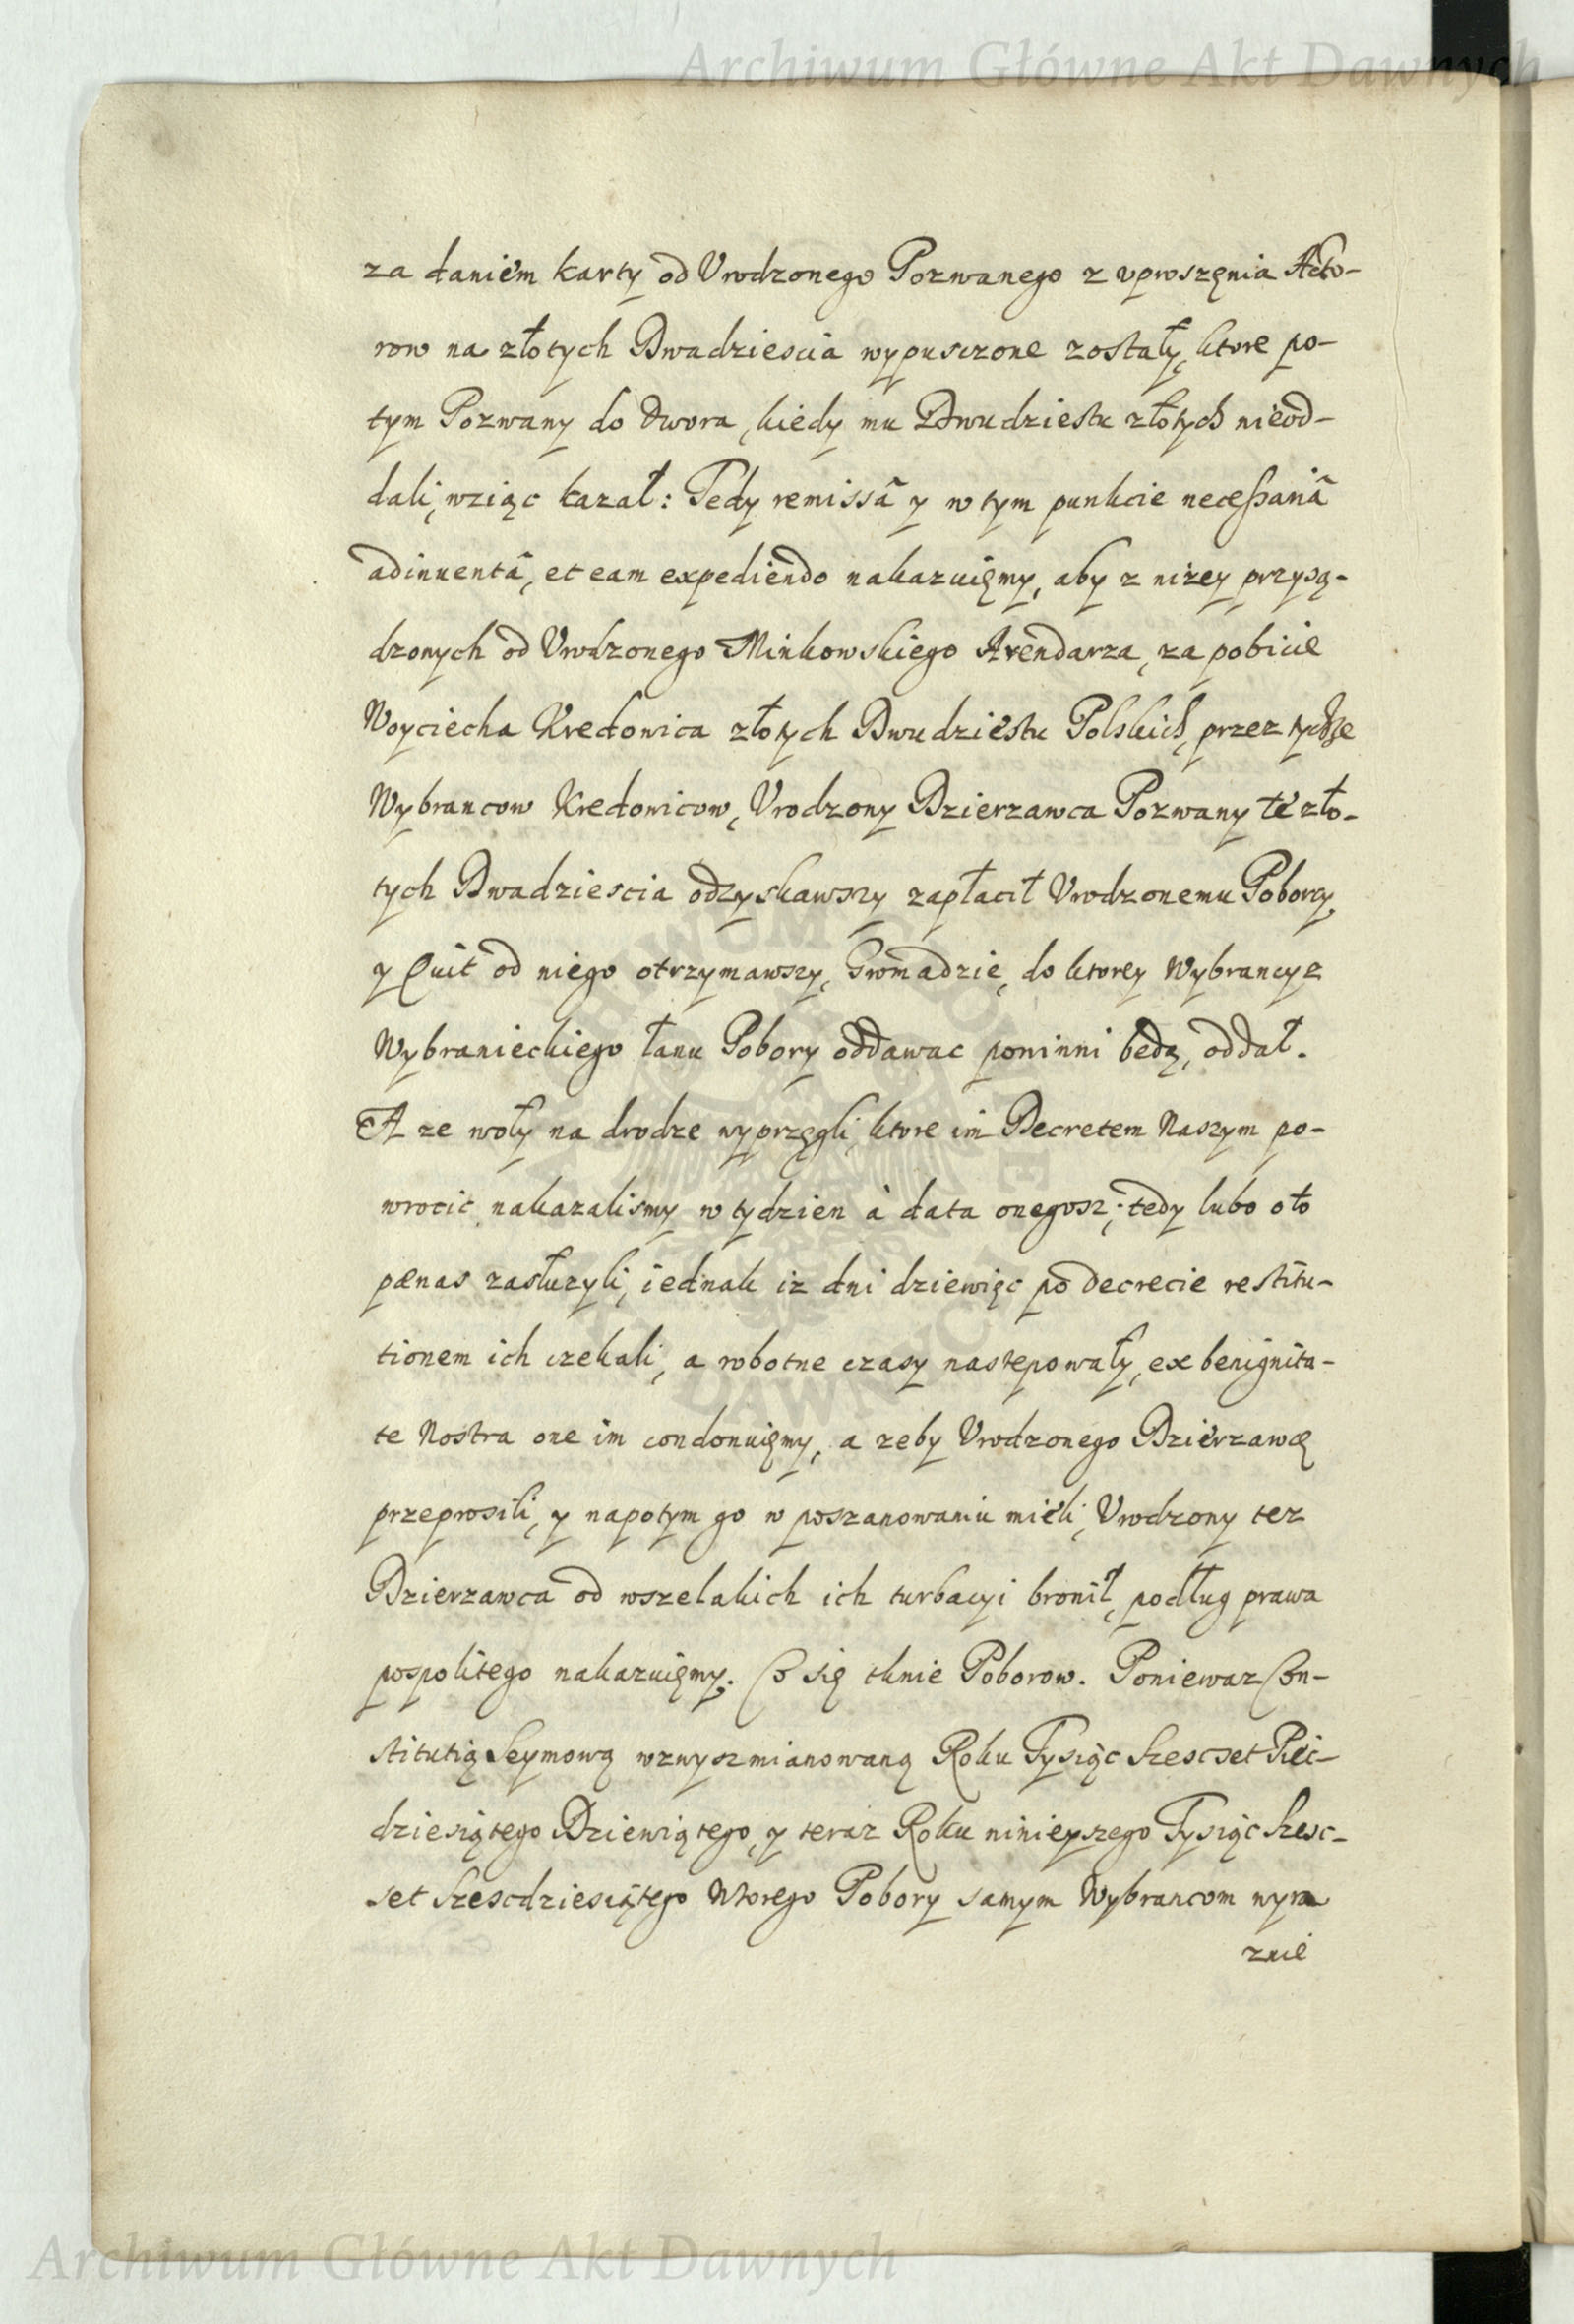 Archiwum Główne Akt Dawnych
za daniem karty od Vrodzonego Pozwanego z vproszęnia Acto-
row na złotych Dwadziescia wypusczone zostały, ktore po-
tym Pozwany do dwora, kiedy mu Dwudziestu złotych nieod-
dali, wziąc kazał: Tedy remissâ y w tym punkcie necessariâ
adinuentâ, et eam expediendo nakazuięmy, aby z nizey przysą-
dzonych od Vrodzonego Minkowskiego Arendarza, za pobicie
Woyciecha Kredowica złotych Dwudziestu Polskich, przez tychze
Wybrancow Kredowicow, Vrodzony Dzierzawca Pozwany te zło-
tych Dwadziescia odzyskawszy zapłacił Vrodzonemu Poborcy,
y Quit od niego otrzymawszy, Gromadzie, do ktorey Wybrancy z
Wybranieckiego łanu Pobory oddawac powinni będą, oddał.
A ze woły na drodze wyprzęgli, ktore im Decretem Naszym po-
wrocic nakazalismy w tydzien à data onegosz; tedy lubo o to
pænas zasłuzyli, iednak iz dni dziewięc po decrecie restitu-
tionem ich czekali, a robotne czasy nastepowały, ex benignita-
te Nostra one im condonuięmy, a zeby Vrodzonego Dzierzawcę
przeprosili, y napotym go w poszanowaniu mieli, Vrodzony tez
Dzierzawca od wszelakich ich turbacyi bronił, podług prawa
pospolitego nakazuięmy. Co się tknie Poborow. Poniewaz Con-
stitutią Seymową wzwyszmianowaną Roku Tysiąc Szescset Pięc-
dziesiątego Dziewiątego, y teraz Roku ninieyszego Tysiąc Szesc-
set Szescdziesiątego Wtorego Pobory samym Wybrancom wyra
znie
Archiwum Główne Akt Dawnych